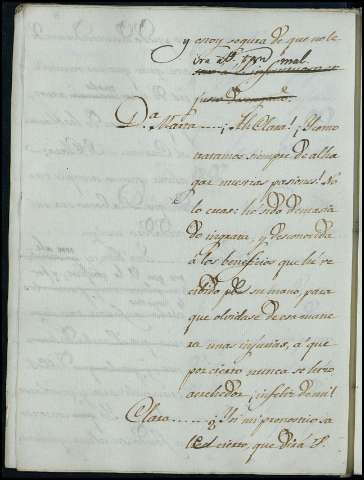 y estoy segura de que no le
ira a Vd. mal.
Da. Maria ..... ¡Ah Clara! ¡Como
tratamos siempre de alha
gar nuestras pasiones! No
lo creas: he sido demasia
do ingrata, y desconocida
á los beneficios que hé re
cibido por su mano, para
que olvidase de esa mane
ra unas injurias, á que
por cierto nunca se hizo
acrehedor; ¡infeliz de mi!
Clara ..... ¡Si mi pronostico sa
le cierto, que dirá V.